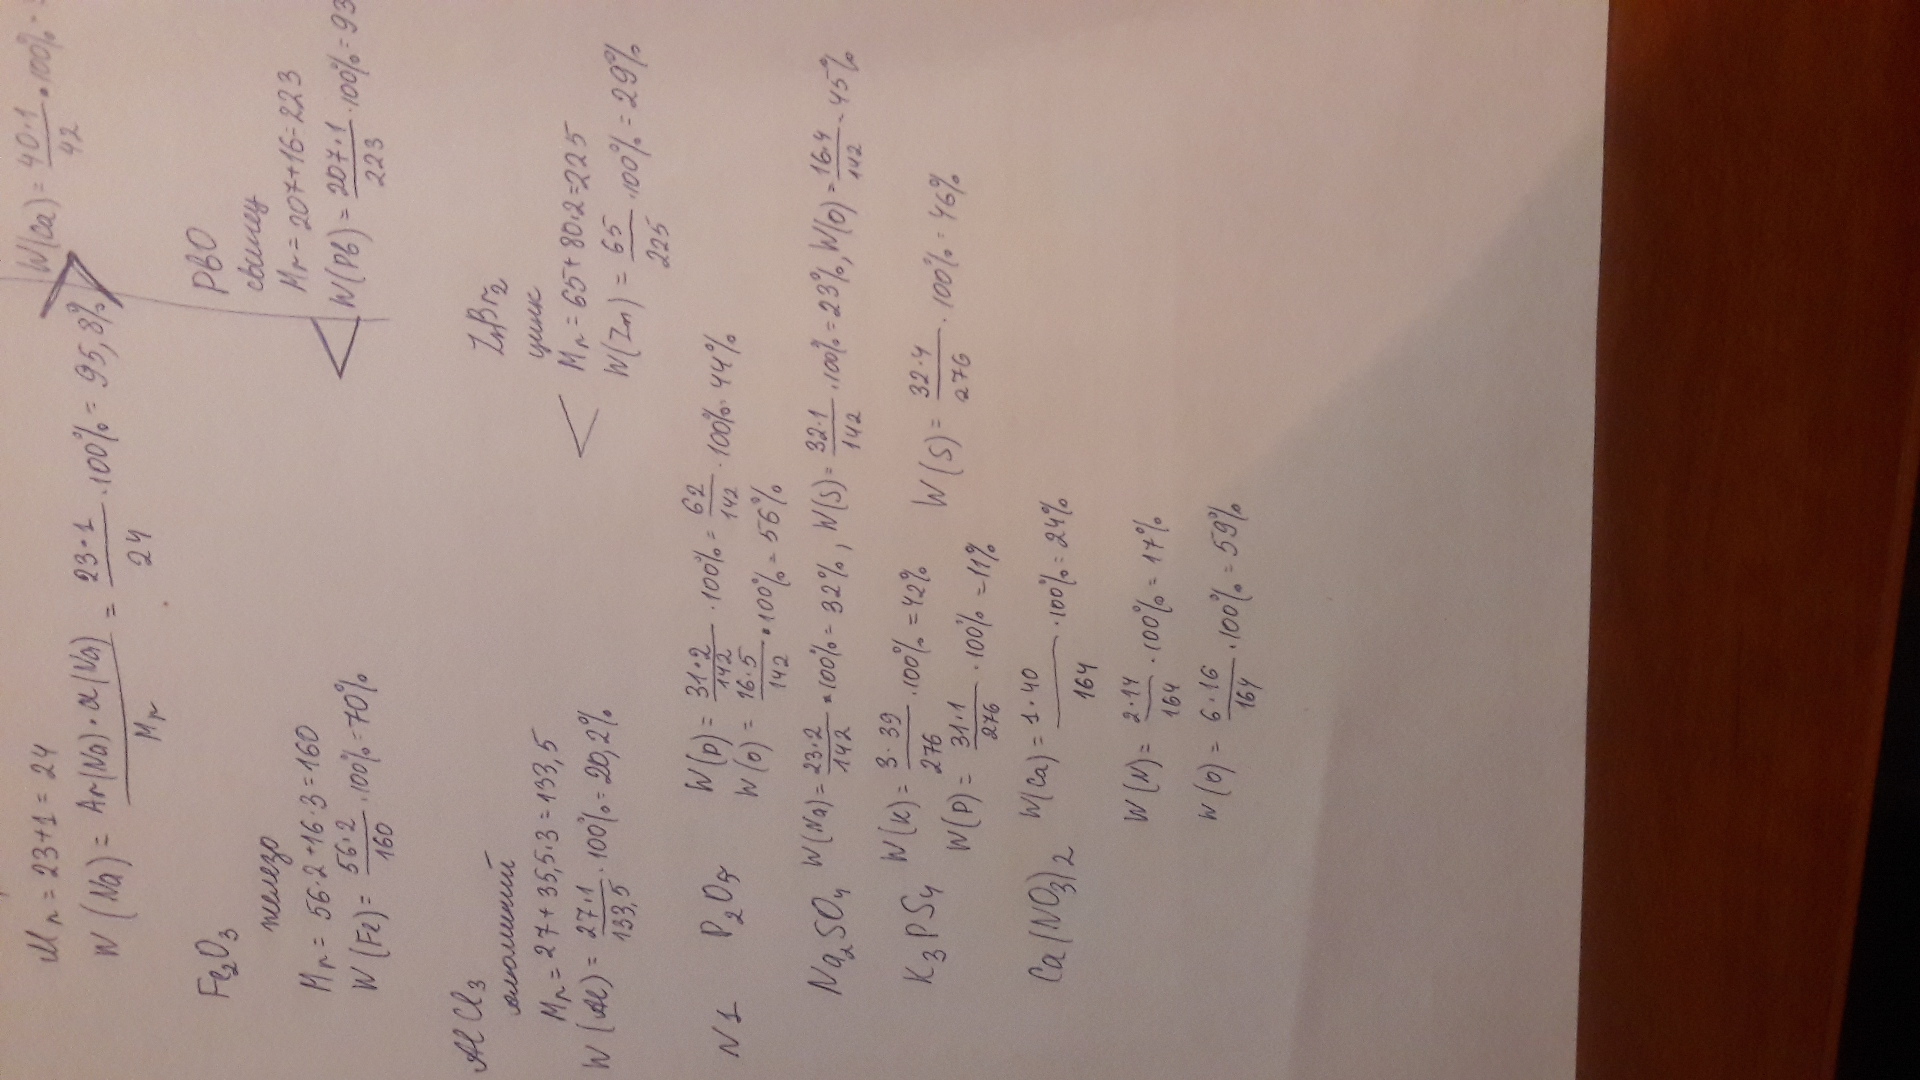 Mr = 23+1 = 24
W (Na) = Ar(Na)·x(Na) / Mr = 23·1 / 24 · 100% = 95,8%
W(Ca) = 40·1 / 42 · 100%
Fe2O3
железо
Mr = 56·2+16·3=160
W (Fe) = 56·2 / 160 · 100% = 70%
PbO
свинец
Mr = 207+16=223
W(Pb) = 207·1 / 223 · 100% = 93
<
AlCl3
алюминий
Mr = 27+35,5·3=133,5
W (Al) = 27·1 / 133,5 · 100% = 20,2%
ZnBr2
цинк
Mr = 65+80·2=225
W(Zn) = 65 / 225 · 100% = 29%
<
N1 P2O5 W(p) = 31·2 / 142 · 100% = 62 / 142 · 100% · 44%
W(o) = 16·5 / 142 · 100% = 56%
Na2SO4 W(Na) = 23·2 / 142 · 100% = 32%, W(S) = 32·1 / 142 · 100% = 23%, W(O) = 16·4 / 142 - 45%
K3PS4 W(K) = 3·39 / 276 · 100% = 42% W(S) = 32·4 / 276 · 100% = 46%
W(P) = 31·1 / 276 · 100% = 11%
Ca(NO3)2 W(Ca) = 1·40 / 164 · 100% = 24%
W(N) = 2·14 / 164 · 100% = 17%
W(O) = 6·16 / 164 · 100% = 59%